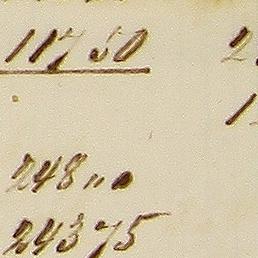 117 50
2
1
248 "
243 75